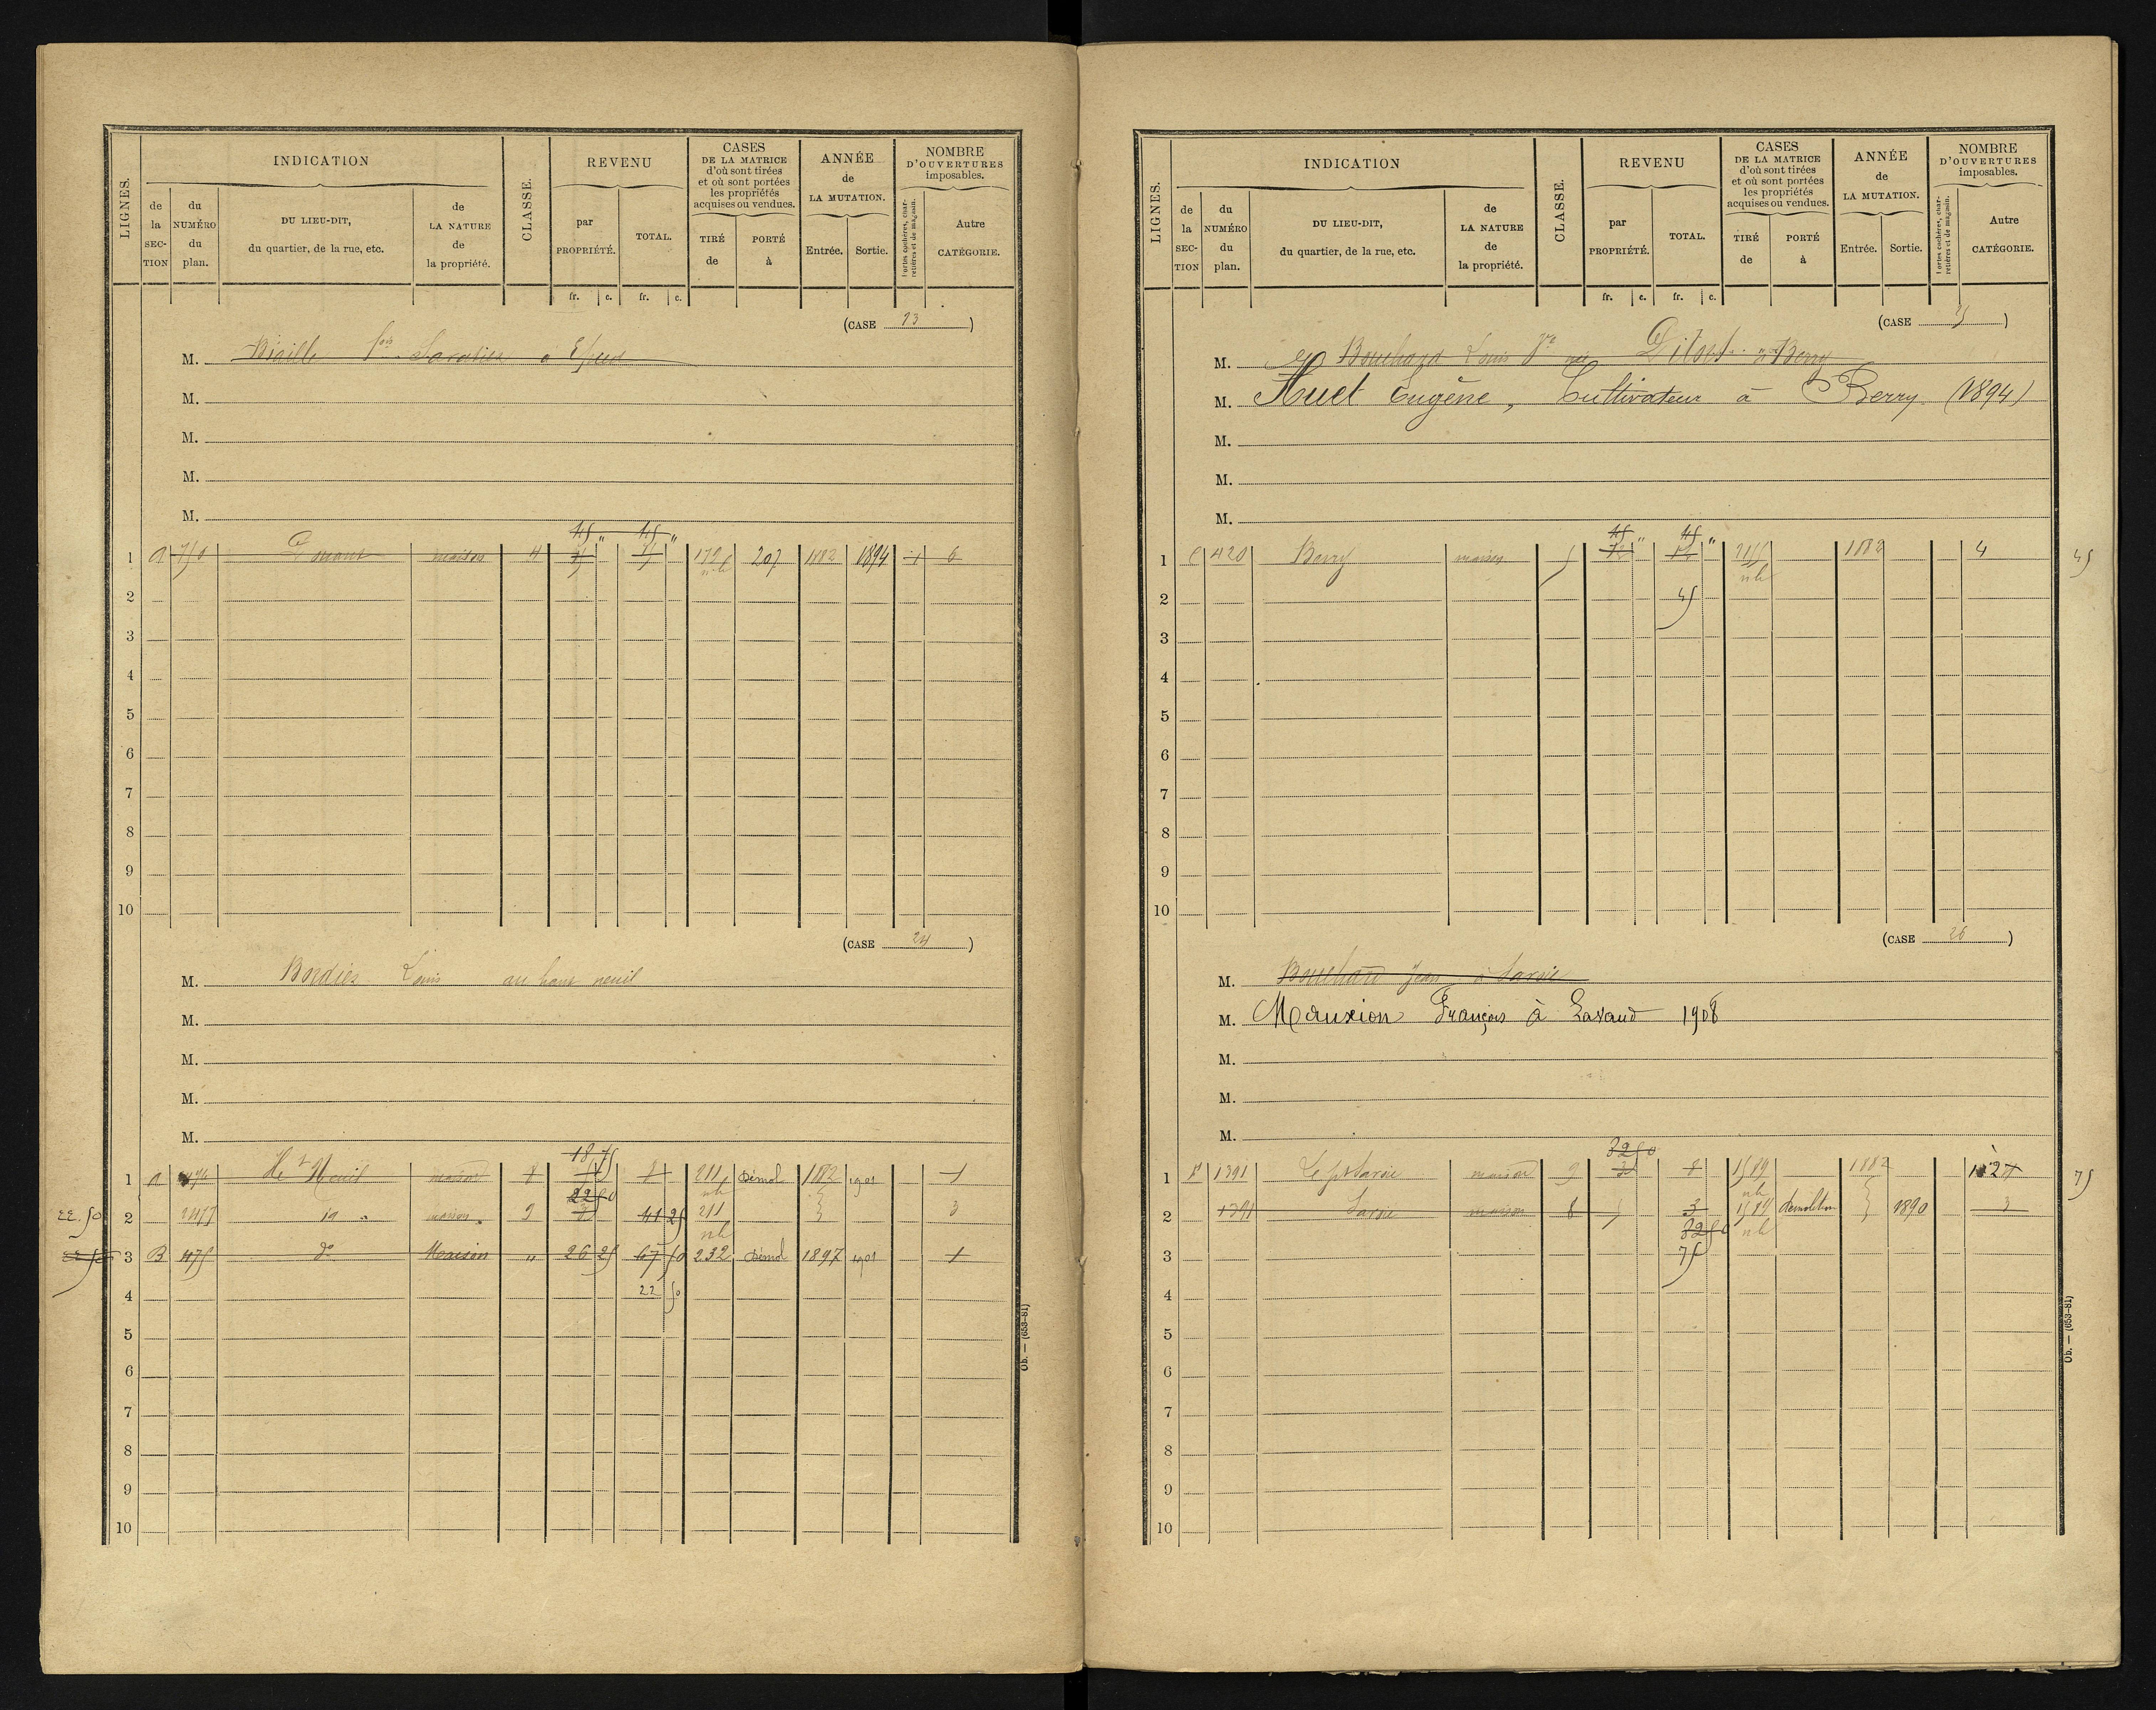 LIGNES.
INDICATION
de la SEC- TION
du NUMÉRO du plan.
DU LIEU-DIT, du quartier, de la rue, etc.
de LA NATURE de la propriété.
CLASSE.
REVENU
par PROPRIÉTÉ.
TOTAL.
fr. c. fr. c.
CASES DE LA MATRICE d'où sont tirées et où sont portées les propriétés acquises ou vendues.
TIRÉ de
PORTÉ à
ANNÉE de LA MUTATION.
Entrée. Sortie.
NOMBRE D'OUVERTURES imposables.
Portes cochères, char- retières et de magasin.
Autre CATÉGORIE.
(CASE 23)
M.
M.
M.
M.
M.
45 " 45 "
1 a 750 maison 4 207 1882 1894 1 6
2
3
4
5
6
7
8
9
10
(CASE 24)
M. Bordier Louis au haut neuil
M.
M.
M.
M.
18 75
1 a Ht Neuil maison 8 8 211 Démol 1882 1901 1
nb
22 50
22.50 2 2477 id " maison 9 41 25 211 3
nb
3 B 1475 do Maison " 26 25 67 50 232 Démol 1897 1901 1
4 22 50
5
6
7
8
9
10
Ob. — (653-81)
LIGNES.
INDICATION
de la SEC- TION
du NUMÉRO du plan.
DU LIEU-DIT, du quartier, de la rue, etc.
de LA NATURE de la propriété.
CLASSE.
REVENU
par PROPRIÉTÉ.
TOTAL.
fr. c. fr. c.
CASES DE LA MATRICE d'où sont tirées et où sont portées les propriétés acquises ou vendues.
TIRÉ de
PORTÉ à
ANNÉE de LA MUTATION.
Entrée. Sortie.
NOMBRE D'OUVERTURES imposables.
Portes cochères, char- retières et de magasin.
Autre CATÉGORIE.
(CASE 25)
M. Bouchard Louis à Berry
M. Huet Eugène, Cultivateur à Berry (1894)
M.
M.
M.
45 " 45 "
1 420 Berry maison 5 1882 4 45
nb
2 45
3
4
5
6
7
8
9
10
(CASE 26)
M. Bouchard Jean à
M. Mauxion François à Lavaud 1908
M.
M.
M.
32 50
1 1391 maison 9 8 1589 1882 75
nb
2 1391 maison 8 5 3 1589 démolition 1890 3
32 50 nb
3 75
4
5
6
7
8
9
10
Ob. — (653-81)